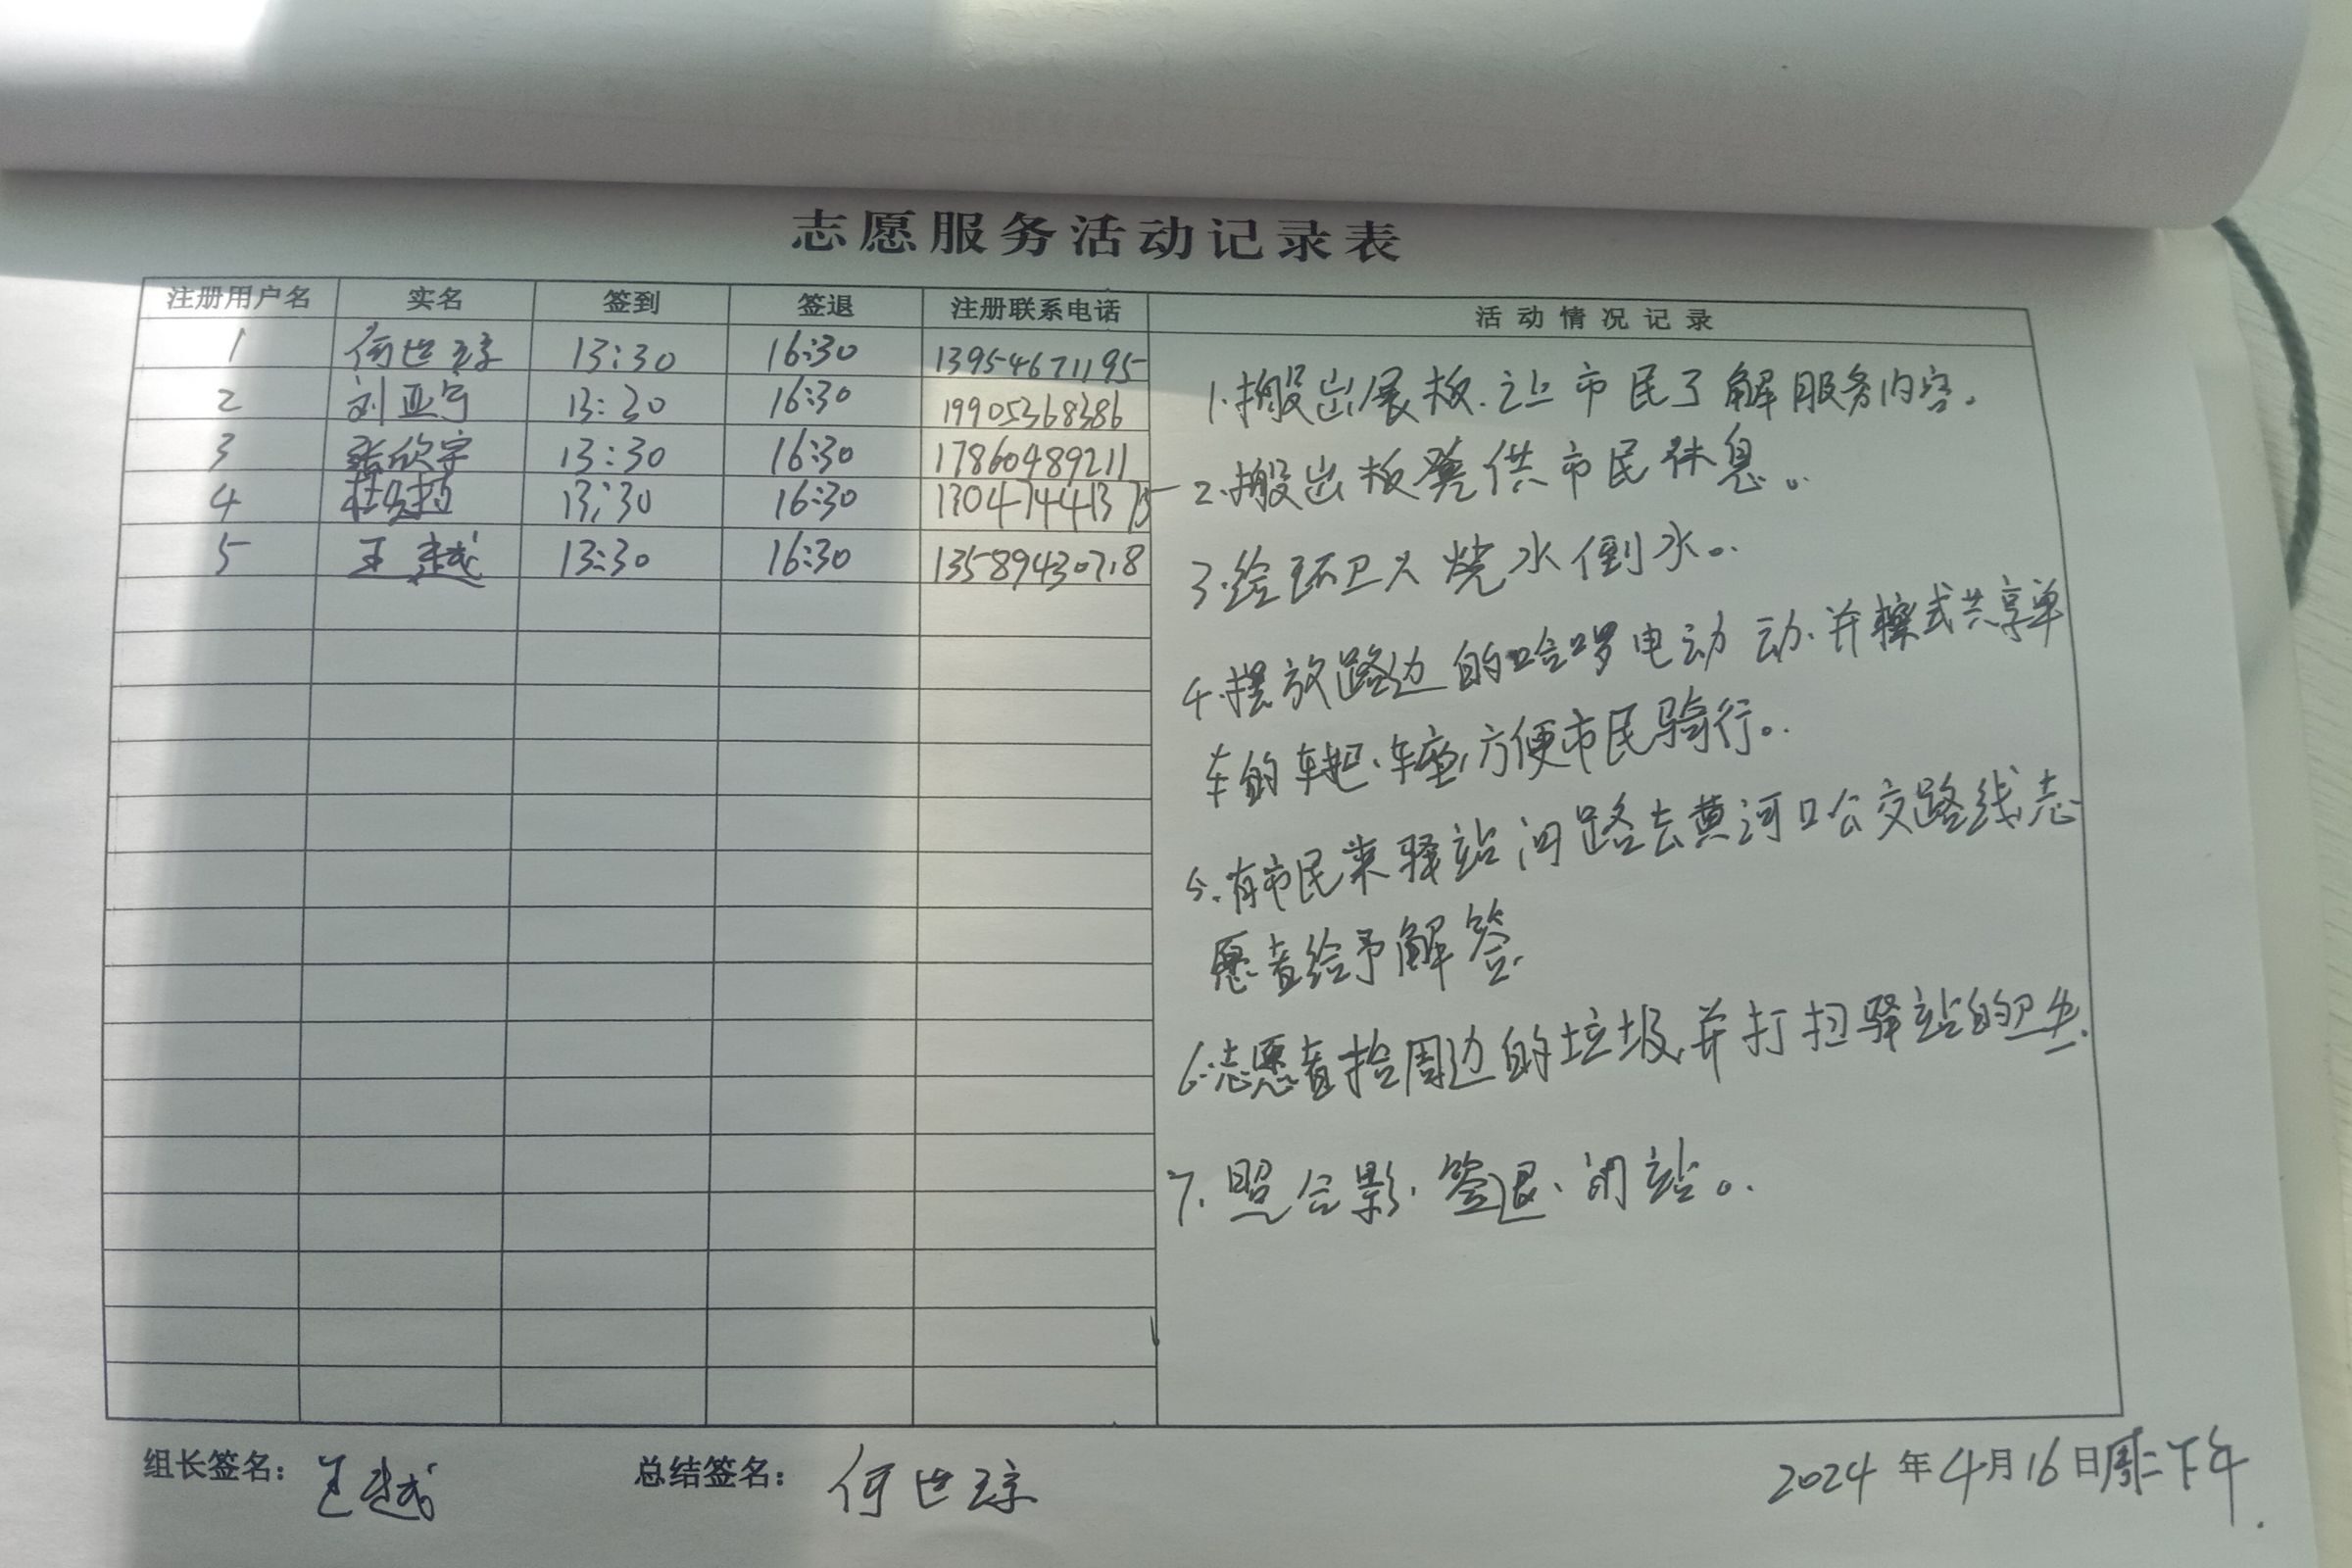 志愿服务活动记录表
注册用户名 实名 签到 签退 注册联系电话 活动情况记录
1 何世琼 13:30 16:30 13954671195
2 刘亚宇 13:30 16:30 19905368386
3 张欣宇 13:30 16:30 17860489211
4 13:30 16:30
5 王越 13:30 16:30 13589430718
1.搬出展板.让市民了解服务内容。
2.搬出板凳供市民休息。
3.给环卫人烧水倒水。
4.摆放路边的哈啰电动动.并擦式共享单
车的车把、车座,方便市民骑行。
5.有市民来驿站问路去黄河口公交路线,志
愿者给予解答.
6.志愿者捡周边的垃圾,并打扫驿站的卫生.
7.照合影.签退、闭站。
组长签名：王越 总结签名：何世琼 2024年4月16日周二下午.